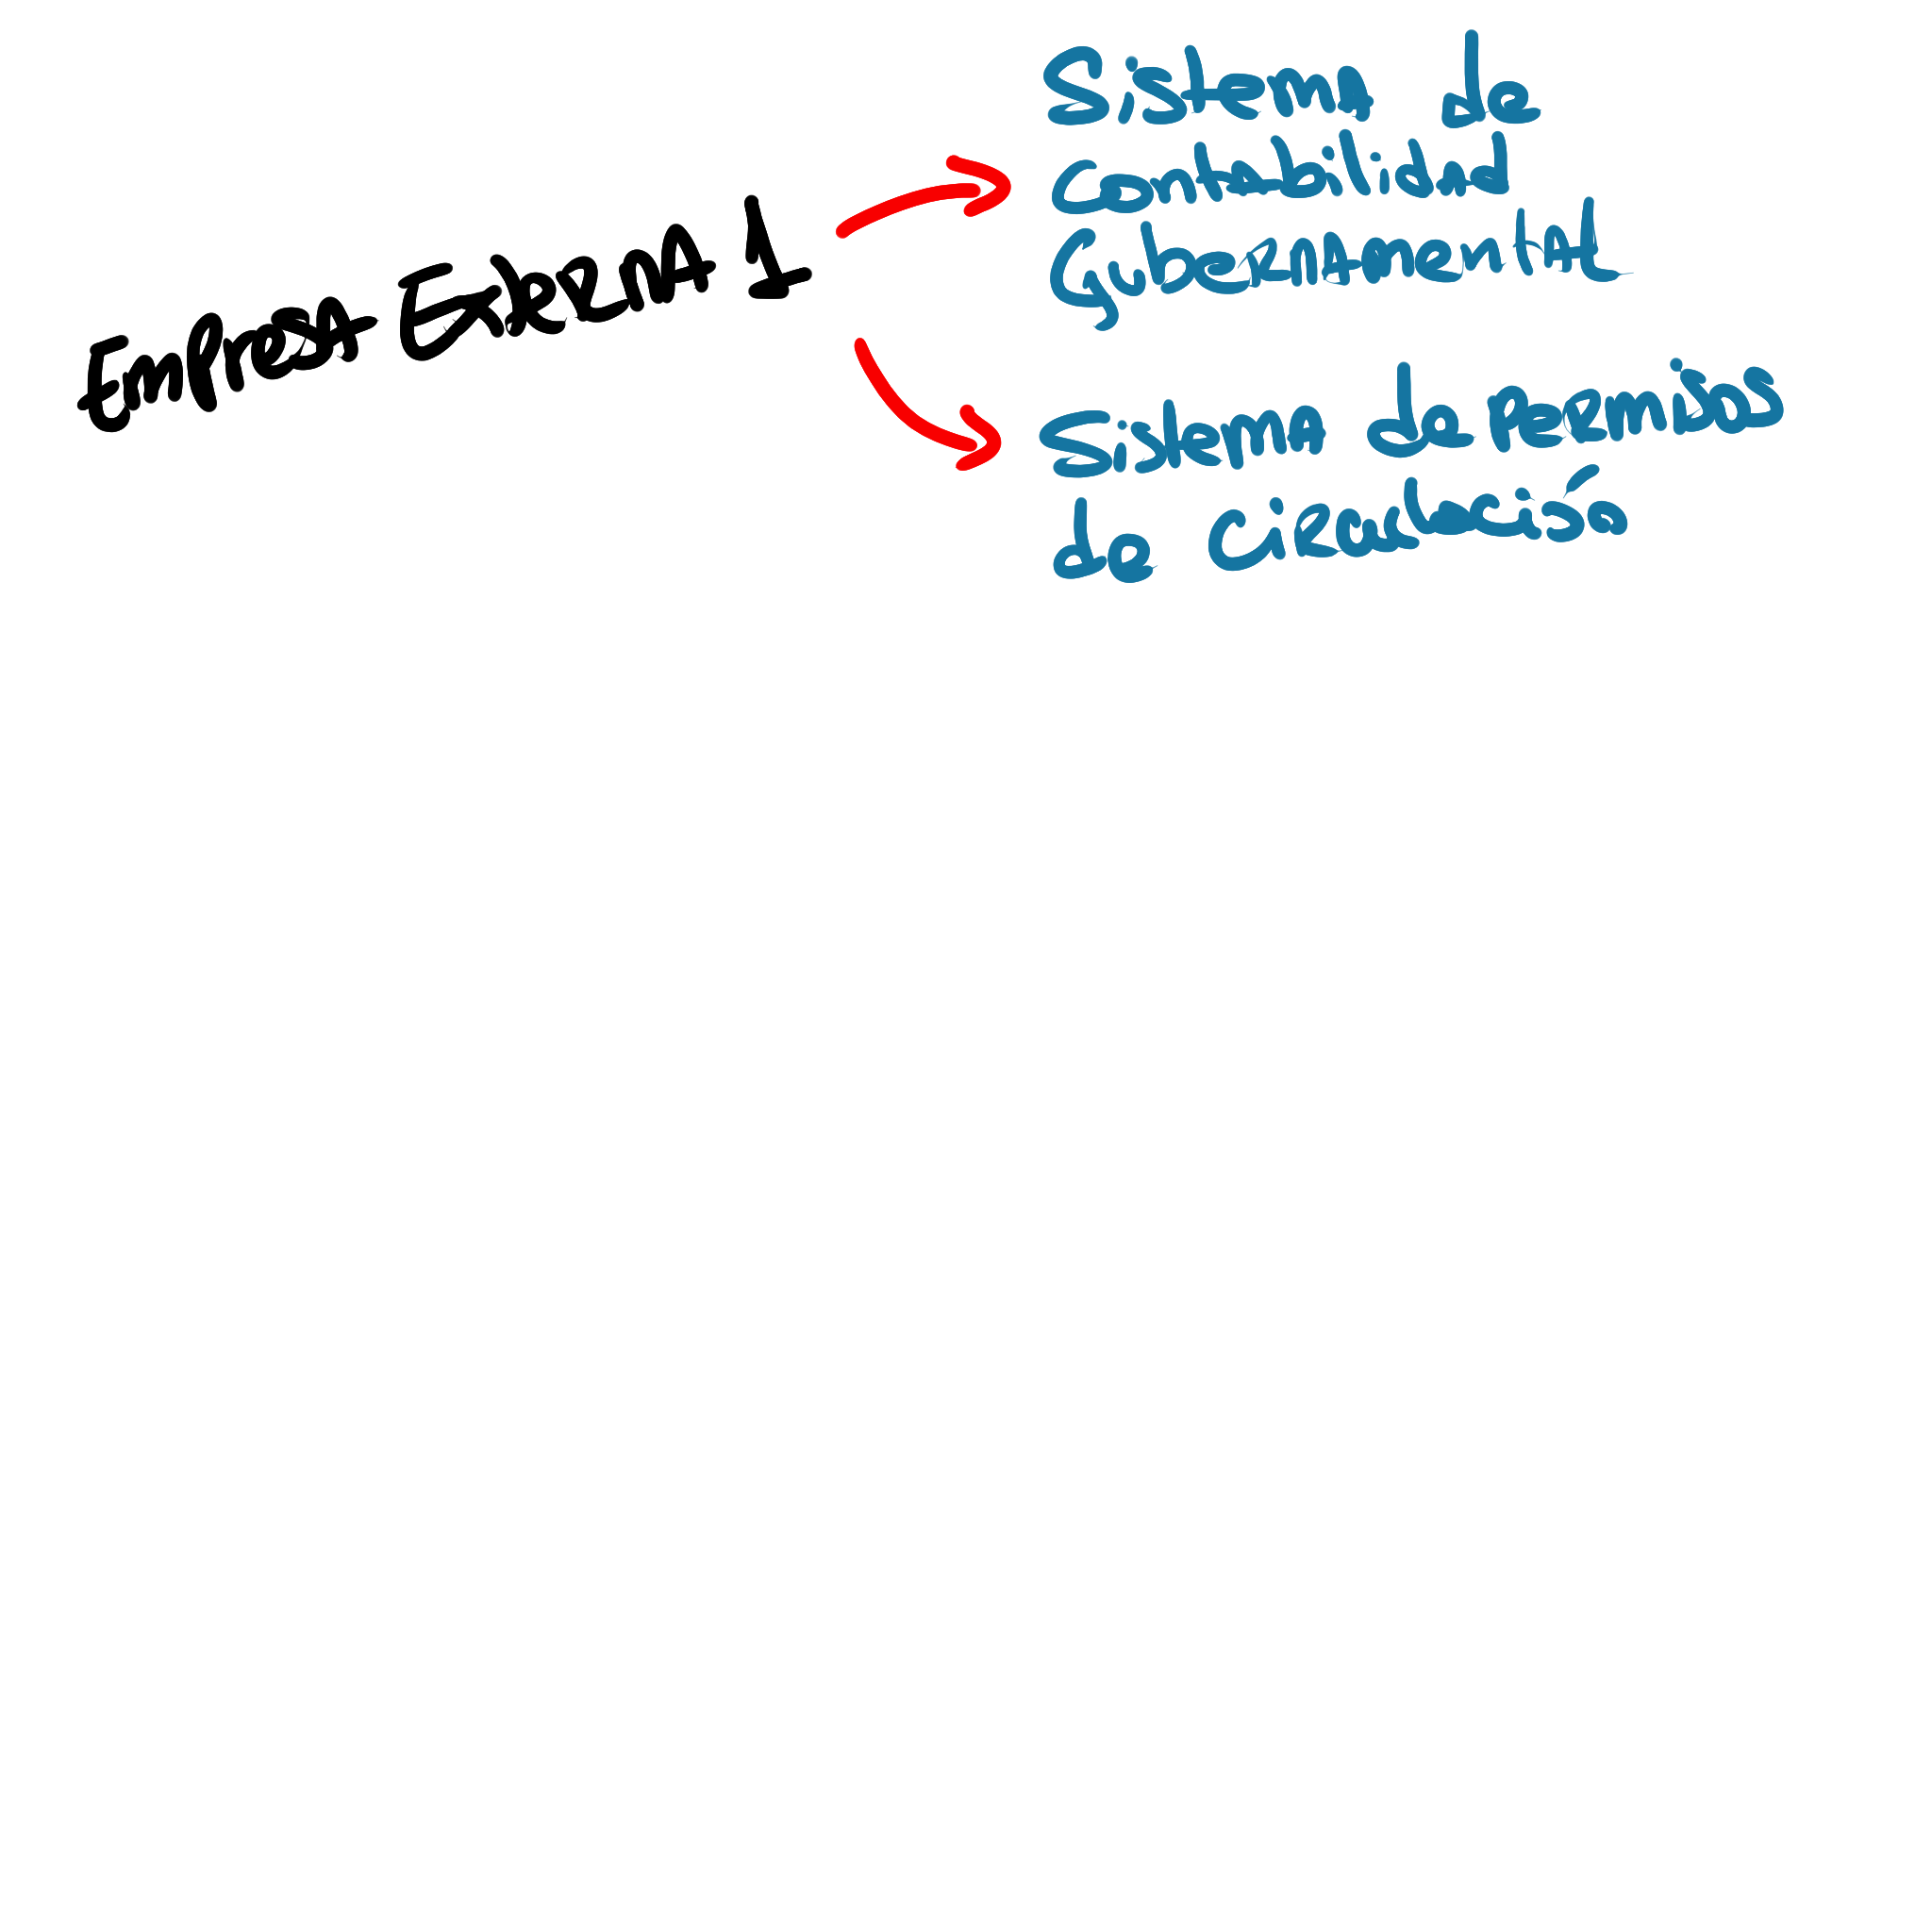 Empresa Externa 1
Sistema de
Contabilidad
Gubernamental
Sistema de Permisos
de Circulació